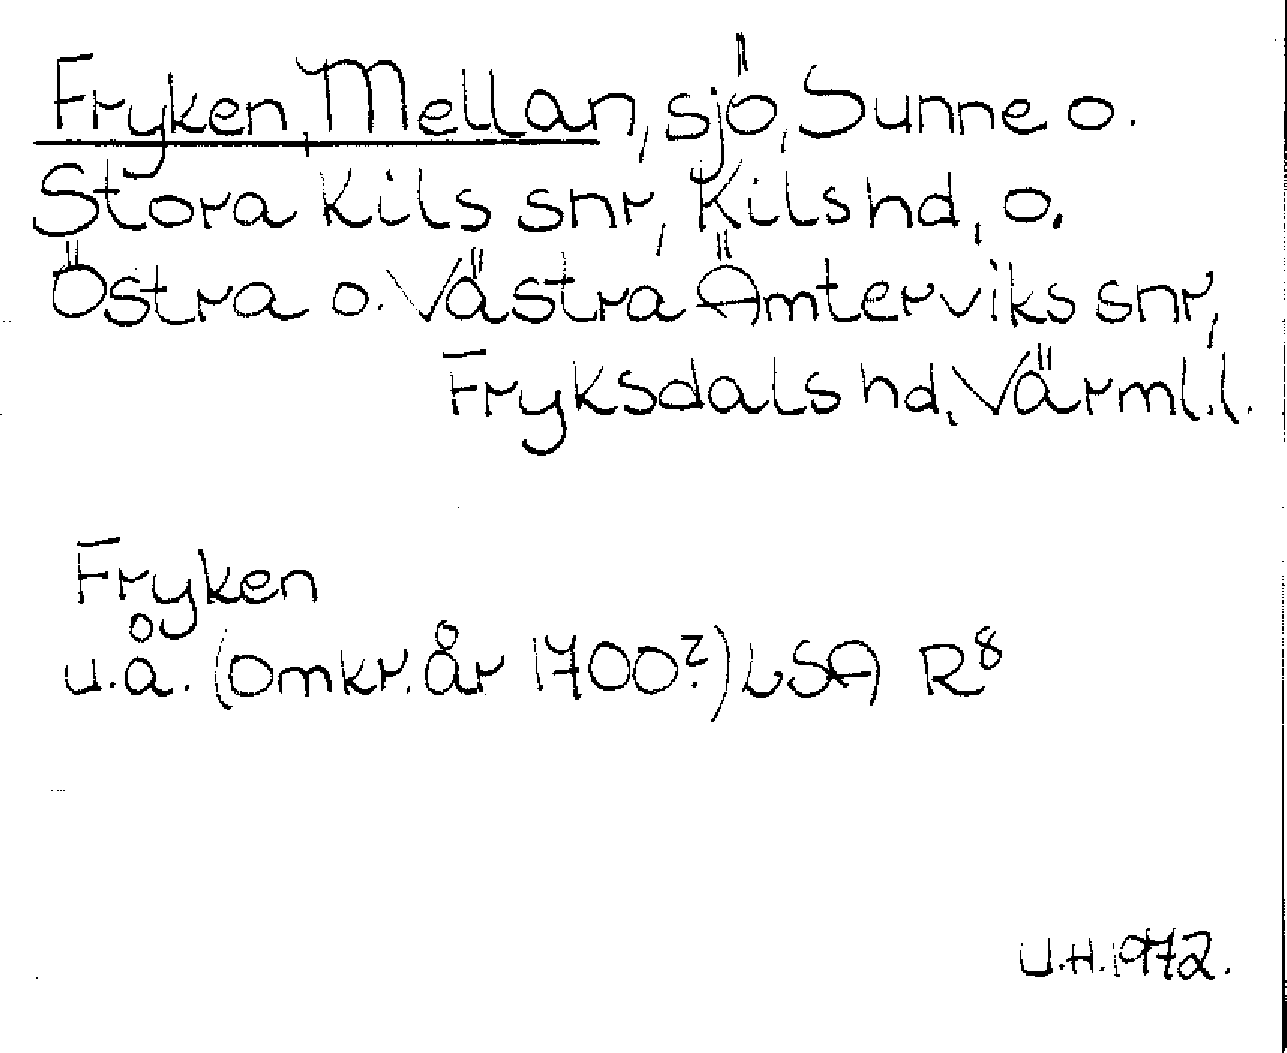 Fryken, Mellan, sjö, Sunne o.
Stora Kils snr, Kils hd, o.
Östra o. Västra Ämterviks snr,
Fryksdals hd, Värml.l.
Fryken
u.å. (omkr. år 1700?) LSA R⁸
U.H. 1972.